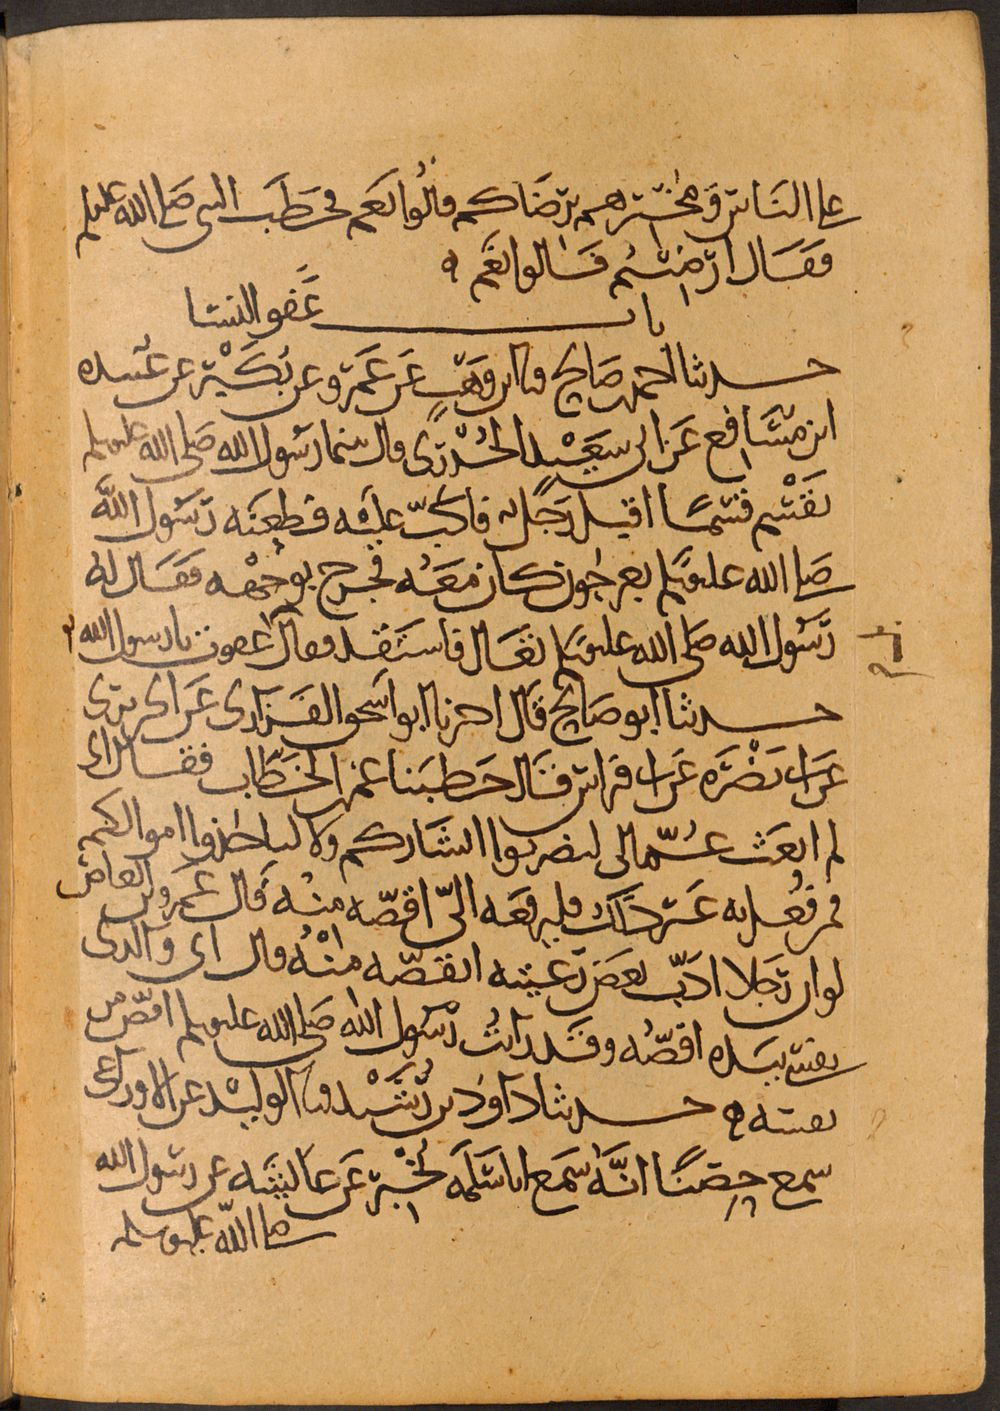 على الناس ومخبرهم برضاكم قالوا نعم فخطب النبي صلى الله عليه وسلم
فقال ارضيتم قالوا نعم ه
باب عفو النسا
حدثنا احمد بن صالح نا ابن وهب عن عمرو عن بكير عن عبيده
ابن مسافع عن ابي سعيد الخدري قال بينما رسول الله صلى الله عليه وسلم
يقسم قسما اقبل رجل فاكب عليه فطعنه رسول الله
صلى الله عليه وسلم بعرجون كان معه فجرح بوجهه فقال له
رسول الله صلى الله عليه وسلم تعال فاستقد فقال عفوت يا رسول الله
حدثنا ابو صالح قال اخبرنا ابو اسحق الفزاري عن الجريري
عن ابي نضره عن ابي فراس قال خطبنا عمر بن الخطاب فقال اني
لم ابعث عمالي ليضربوا ابشاركم ولا لياخذوا اموالكم
فمن فعل به غير ذلك فليرفعه الي اقصه منه قال عمرو بن العاص
لو ان رجلا ادب بعض رعيته اتقصه منه قال اي والذي
نفسي بيده اقصه وقد رايت رسول الله صلى الله عليه وسلم اقص من
نفسه ه حدثنا داود بن رشيد نا الوليد عن الاوزاعي
سمع حصنا انه سمع ابا سلمه يخبر عن عايشه عن رسول الله
صلى الله عليه وسلم